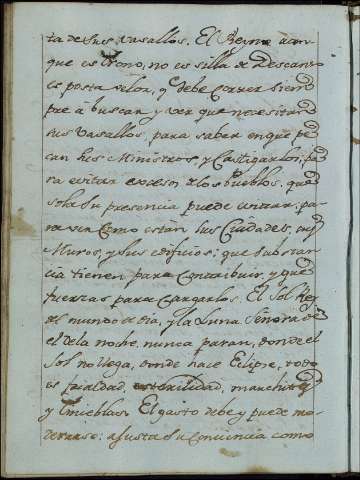 ta de sus vasallos. El Reyno aun
que es trono, no es silla de descanso
es posta veloz, y debe correr siem
pre à buscar y ver que necesitan
sus vasallos, para saber en que pe
can los Ministros y Castigarlos; pa
ra evitar excesos a los Pueblos, que
sola su presencia puede evitar; pa
ra ver como están sus Ciudades, sus
Muros, y sus edificios; que substan
cia tienen para Contribuir, y que
fuerzas para Cargarlos. El Sol Rey
del mundo de dia, y la Luna Señora
de la noche, nunca paran, donde el
Sol no llega, donde hace Eclipse, todo
es frialdad, esterilidad, marchitez
y tinieblas. El gasto debe y puede mo
derarse: a justa su Conciencia como